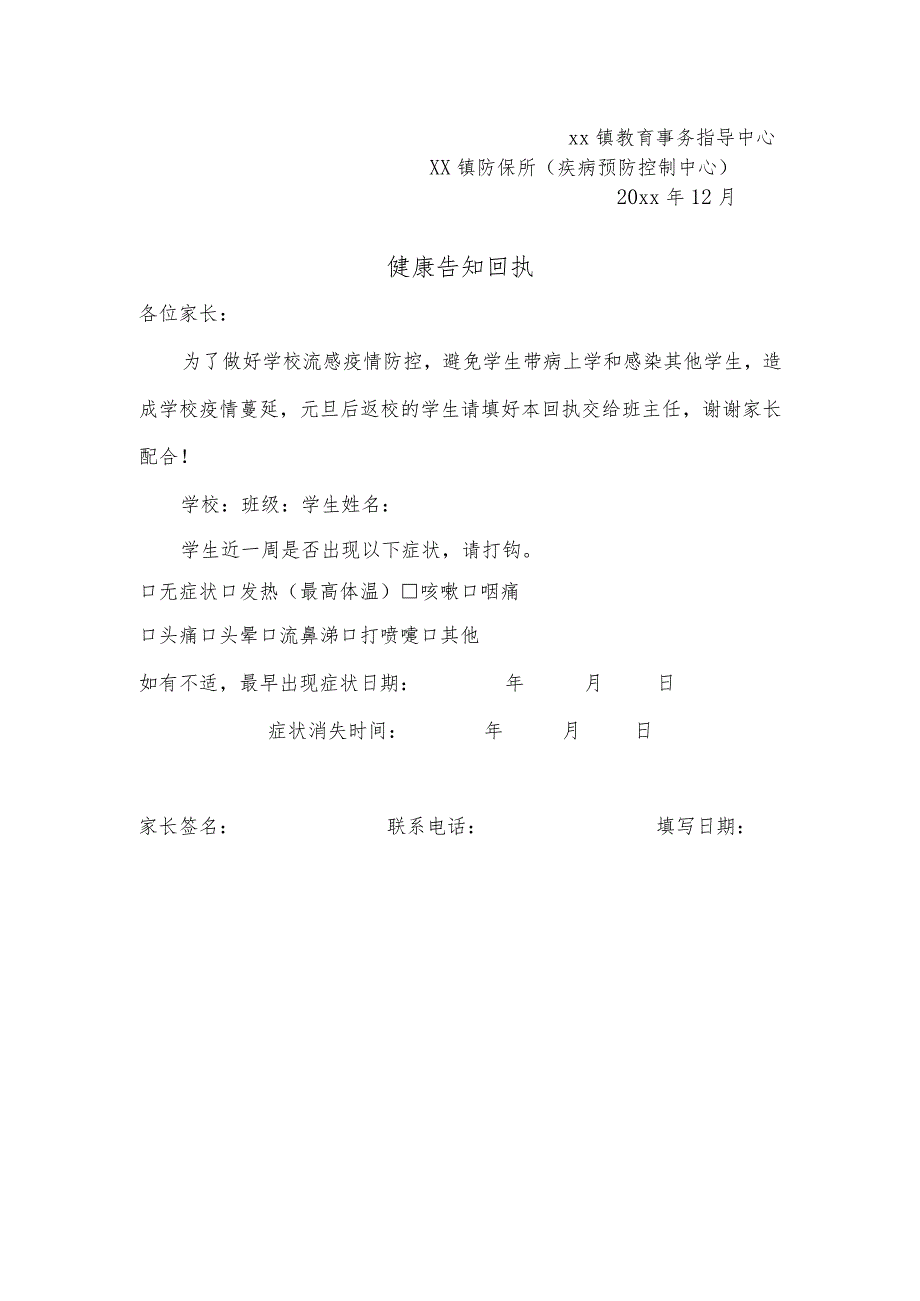 xx 镇教育事务指导中心
XX 镇防保所（疾病预防控制中心）
20xx 年 12 月
健康告知回执
各位家长：
为了做好学校流感疫情防控，避免学生带病上学和感染其他学生，造
成学校疫情蔓延，元旦后返校的学生请填好本回执交给班主任，谢谢家长
配合！
学校：班级：学生姓名：
学生近一周是否出现以下症状，请打钩。
口无症状口发热（最高体温）□咳嗽口咽痛
口头痛口头晕口流鼻涕口打喷嚏口其他
如有不适，最早出现症状日期： 年 月 日
症状消失时间： 年 月 日
家长签名： 联系电话： 填写日期：